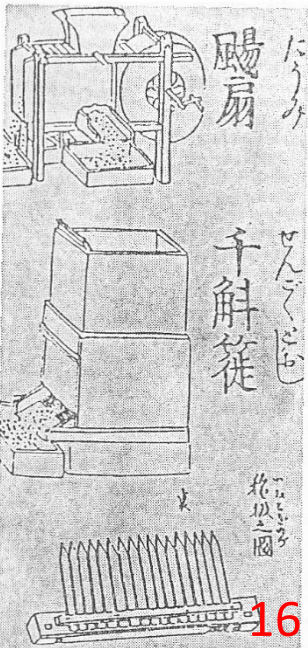 たうみ
颺扇
せんごくどおし
千斛簁
稲扱之圖
16